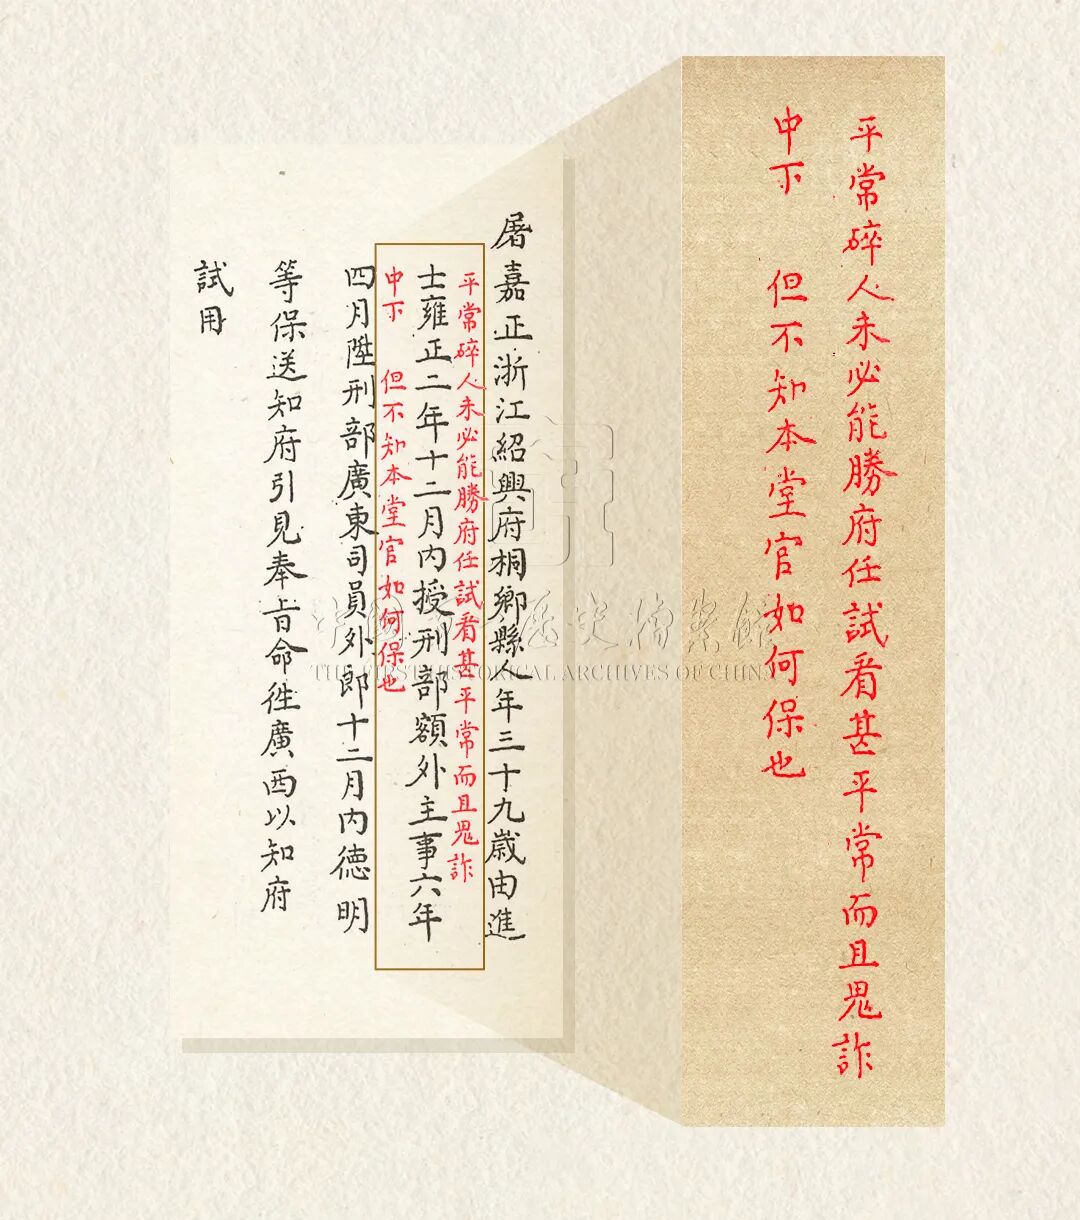 平常碎人未必能勝府任試看甚平常而且鬼詐
中下 但不知本堂官如何保也
屠嘉正浙江紹興府桐鄉縣人年三十九歲由進
平常碎人未必能勝府任試看甚平常而且鬼詐
士雍正二年十二月內授刑部額外主事六年
中下 但不知本堂官如何保也
四月陞刑部廣東司員外郎十二月內德明
等保送知府引見奉旨命徃廣西以知府
試用
中國第一歷史檔案館
THE FIRST HISTORICAL ARCHIVES OF CHINA